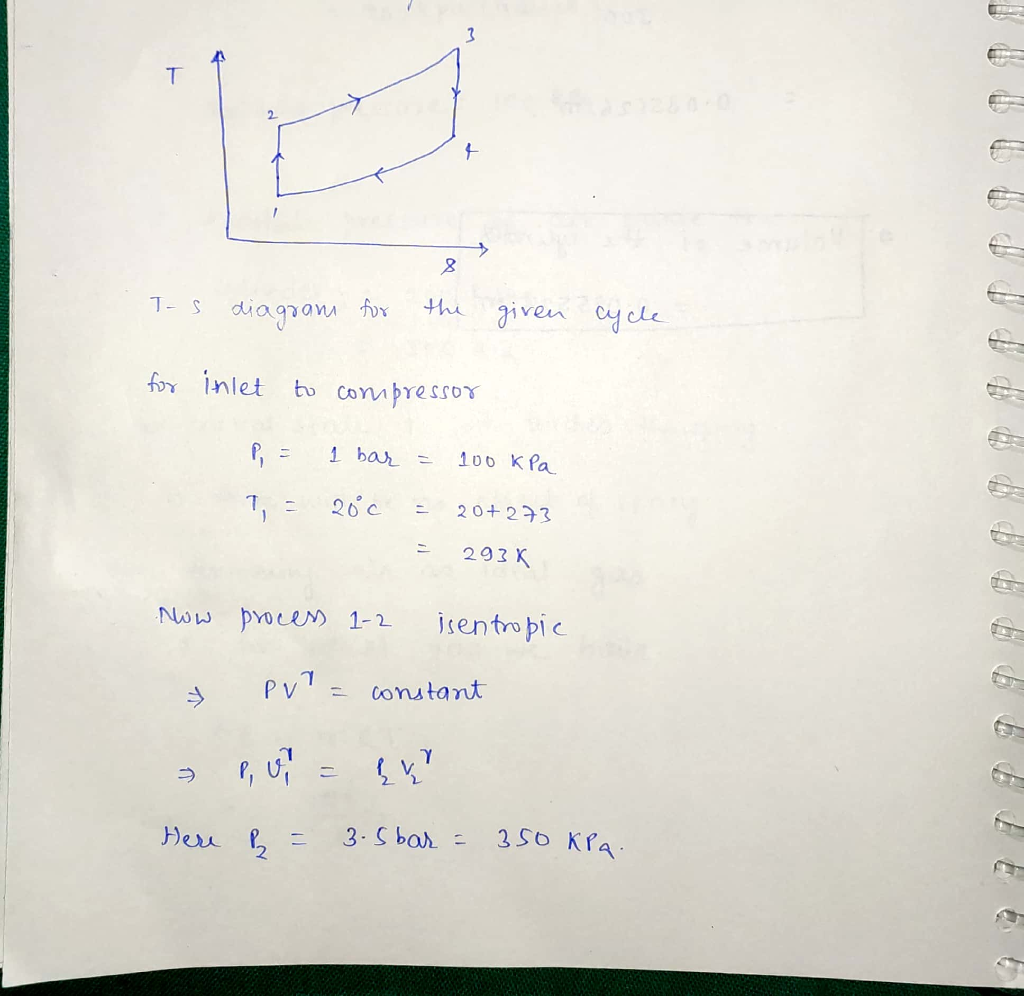 T
3
2
4
1
s
T-s diagram for the given cycle
for inlet to compressor
P₁ = 1 bar = 100 KPa
T₁ = 20°C = 20+273
= 293 K
Now process 1-2 isentropic
⇒ PV^γ = constant
⇒ P₁ V₁^γ = P₂ V₂^γ
Here P₂ = 3.5 bar = 350 KPa.